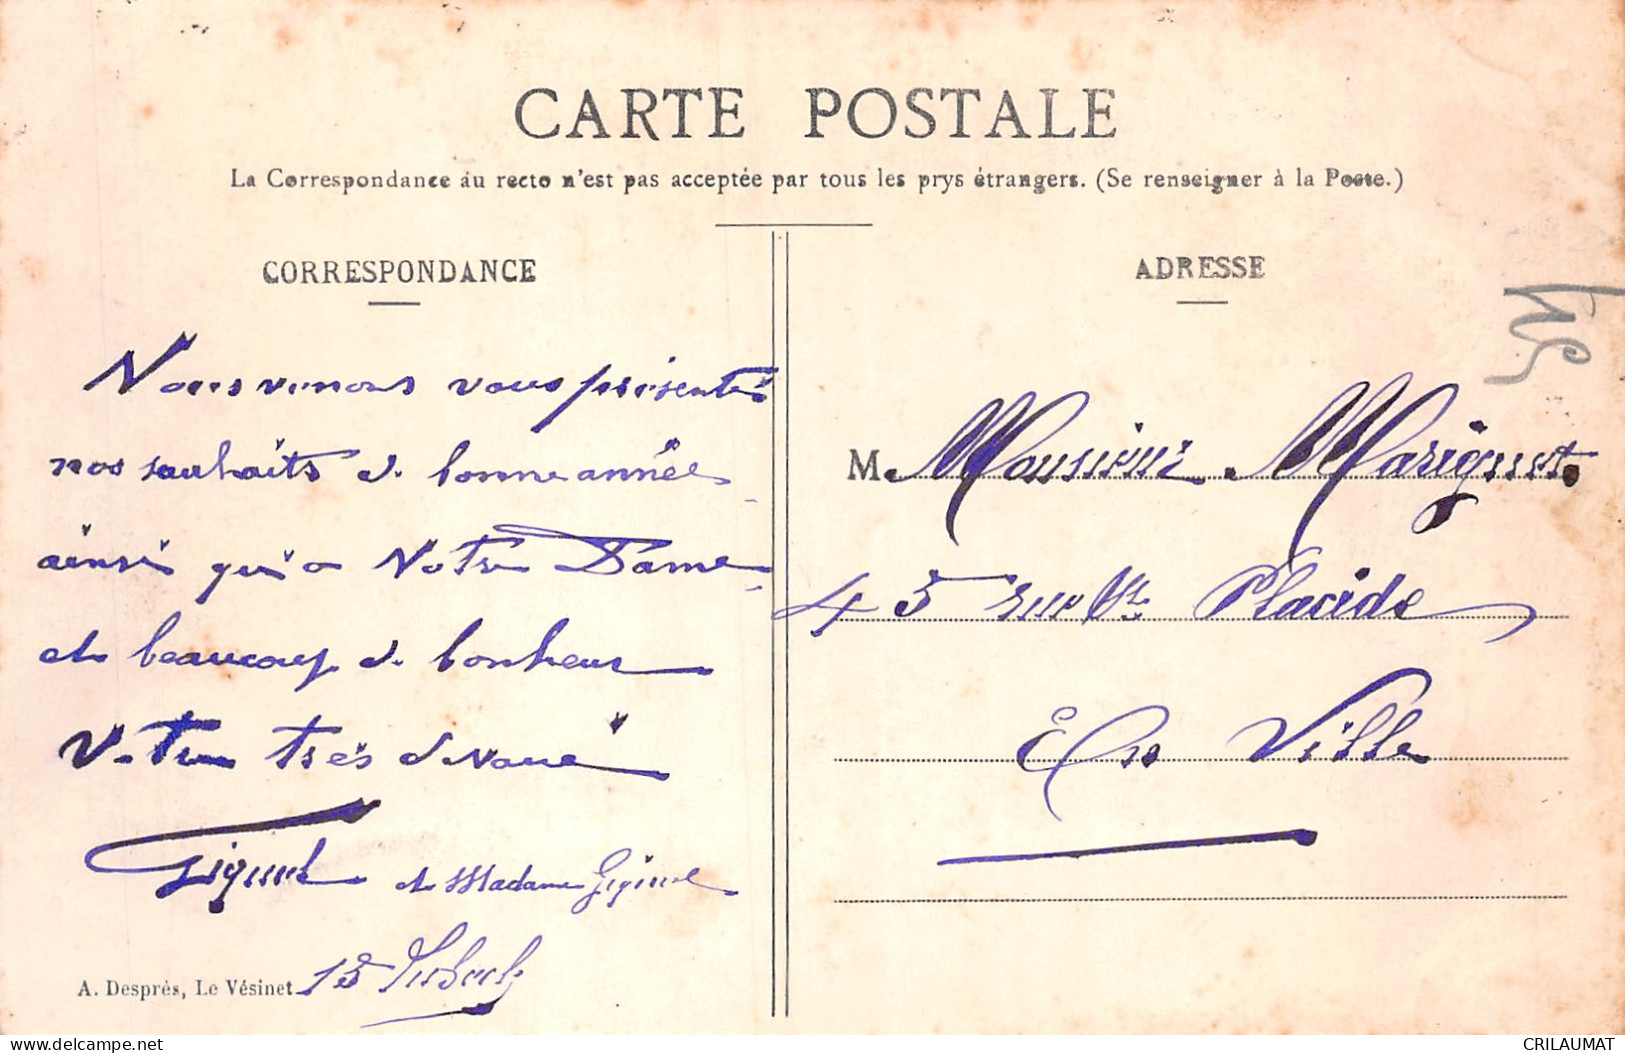 CARTE POSTALE
La Correspondance au recto n'est pas acceptée par tous les prys étrangers. (Se renseigner à la Poste.)
CORRESPONDANCE
ADRESSE
Nous venons vous présenter
nos souhaits de bonne année
ainsi qu'a Votre Dame
et beaucoup de bonheur
Votre très dévoué
et Madame
15
A. Desprès, Le Vésinet
M. Monsieur Marignet.
45 rue St Placide
En Ville
delcampe.net
CRILAUMAT